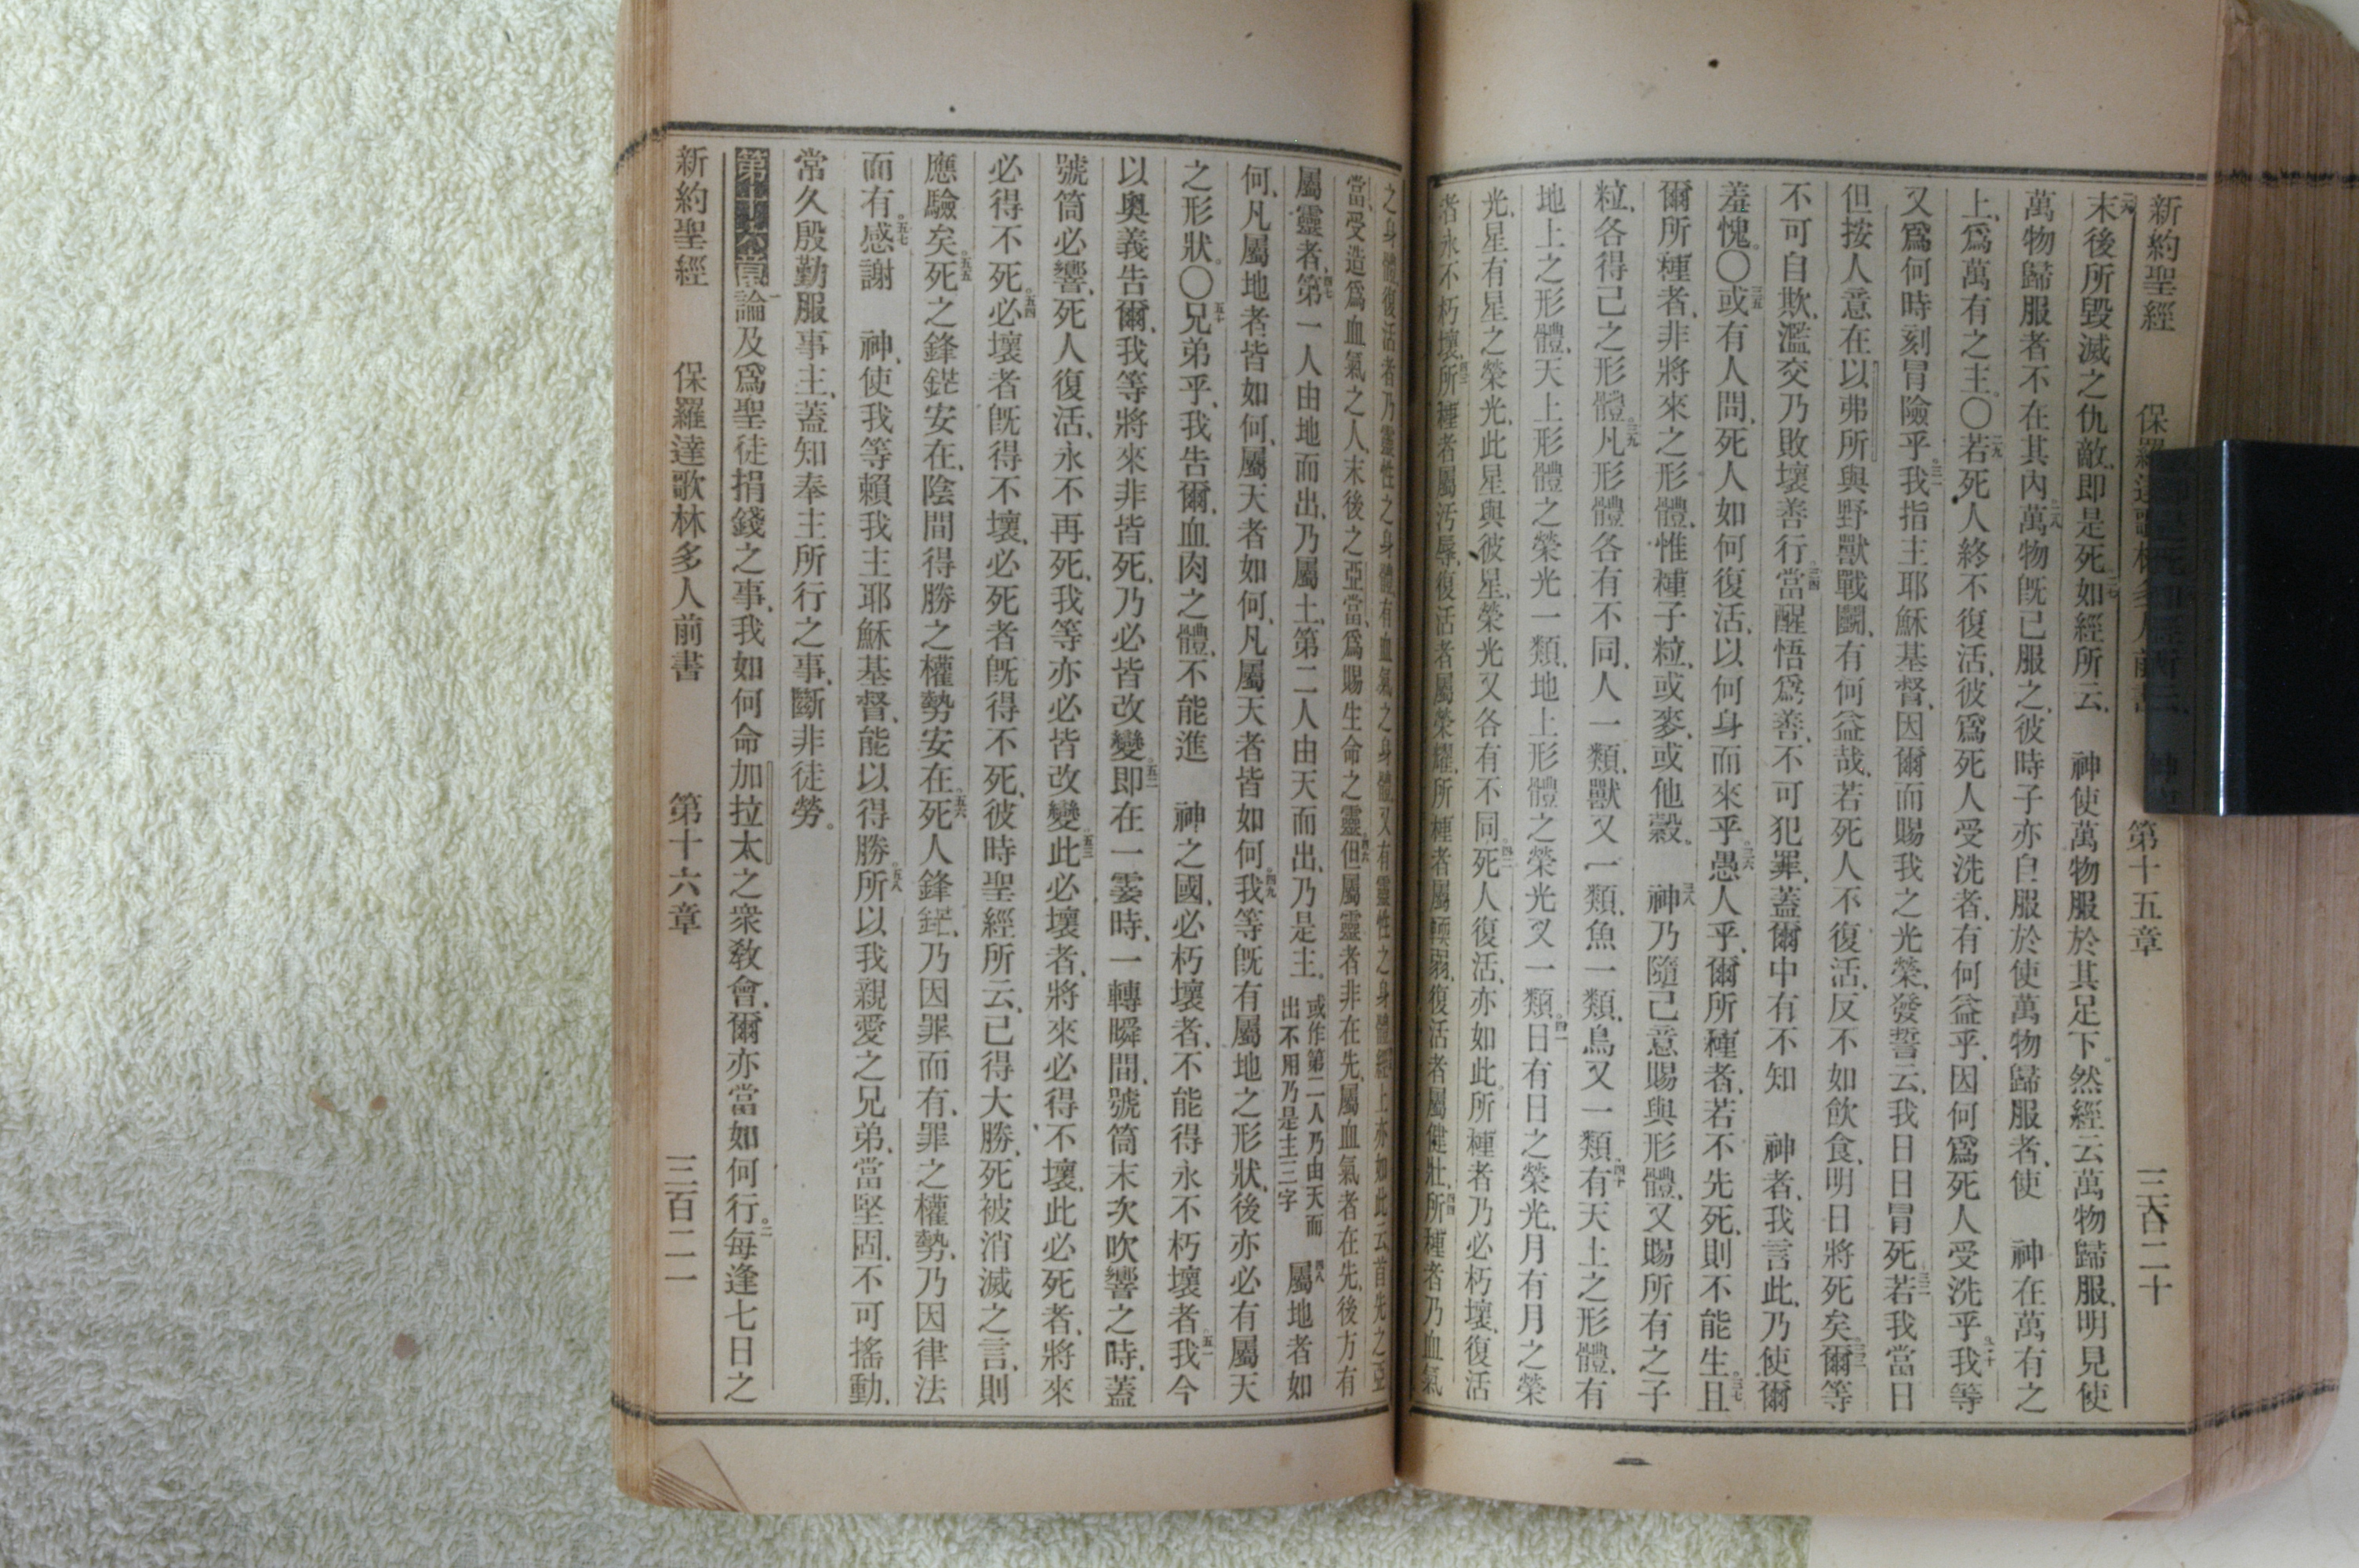 新約聖經 保羅達歌林多人前書 第十五章 三百二十
末後所毀滅之仇敵、卽是死、二七如經所云、 神使萬物服於其足下。然經云萬物歸服、明見使
萬物歸服者不在其內、二八萬物旣已服之、彼時子亦自服於使萬物歸服者、使 神在萬有之
上、爲萬有之主。〇二九若死人終不復活、彼爲死人受洗者、有何益乎、因何爲死人受洗乎。三十我等
又爲何時刻冒險乎。三一我指主耶穌基督、因爾而賜我之光榮、發誓云、我日日冒死。三二若我當日
但按人意在以弗所與野獸戰鬬、有何益哉、若死人不復活、反不如飮食、明日將死矣。三三爾等
不可自欺、濫交乃敗壞善行。三四當醒悟爲善、不可犯罪、蓋爾中有不知 神者、我言此、乃使爾
羞愧。〇三五或有人問、死人如何復活、以何身而來乎。三六愚人乎、爾所種者、若不先死、則不能生。三七且
爾所種者、非將來之形體、惟種子粒、或麥、或他穀。 三八神乃隨己意賜與形體、又賜所有之子
粒、各得己之形體。三九凡形體各有不同、人一類、獸又一類、魚一類、鳥又一類。四十有天上之形體、有
地上之形體、天上形體之榮光一類、地上形體之榮光又一類。四一日有日之榮光、月有月之榮
光、星有星之榮光、此星與彼星、榮光又各有不同。四二死人復活、亦如此。所種者乃必朽壞、復活
者永不朽壞。四三所種者屬汚辱、復活者屬榮耀、所種者屬輭弱、復活者屬健壯。四四所種者乃血氣
之身體、復活者乃靈性之身體、有血氣之身體、又有靈性之身體。經上亦如此云、首先之亞
當、受造爲血氣之人、末後之亞當、爲賜生命之靈。四六但屬靈者非在先、屬血氣者在先、後方有
屬靈者。四七第一人由地而出、乃屬土、第二人由天而出、乃是主。或作第二人乃由天而出不用乃是主三字 四八屬地者如
何、凡屬地者皆如何、屬天者如何、凡屬天者皆如何。四九我等旣有屬地之形狀、後亦必有屬天
之形狀。〇五十兄弟乎、我告爾、血肉之體、不能進 神之國、必朽壞者、不能得永不朽壞者。五一我今
以奧義告爾、我等將來非皆死、乃必皆改變。五二卽在一霎時、一轉瞬間、號筒末次吹響之時、蓋
號筒必響、死人復活、永不再死、我等亦必皆改變。五三此必壞者、將來必得不壞、此必死者、將來
必得不死。五四必壞者旣得不壞、必死者旣得不死、彼時聖經所云、已得大勝、死被消滅之言、則
應驗矣。五五死之鋒鋩安在、陰間得勝之權勢安在。五六死人鋒鋩、乃因罪而有、罪之權勢、乃因律法
而有。五七感謝 神、使我等賴我主耶穌基督、能以得勝。五八所以我親愛之兄弟、當堅固、不可搖動、
常久殷勤服事主、蓋知奉主所行之事、斷非徒勞。
第十六章 一論及爲聖徒捐錢之事、我如何命加拉太之衆敎會、爾亦當如何行。二每逢七日之
新約聖經 保羅達歌林多人前書 第十六章 三百二一